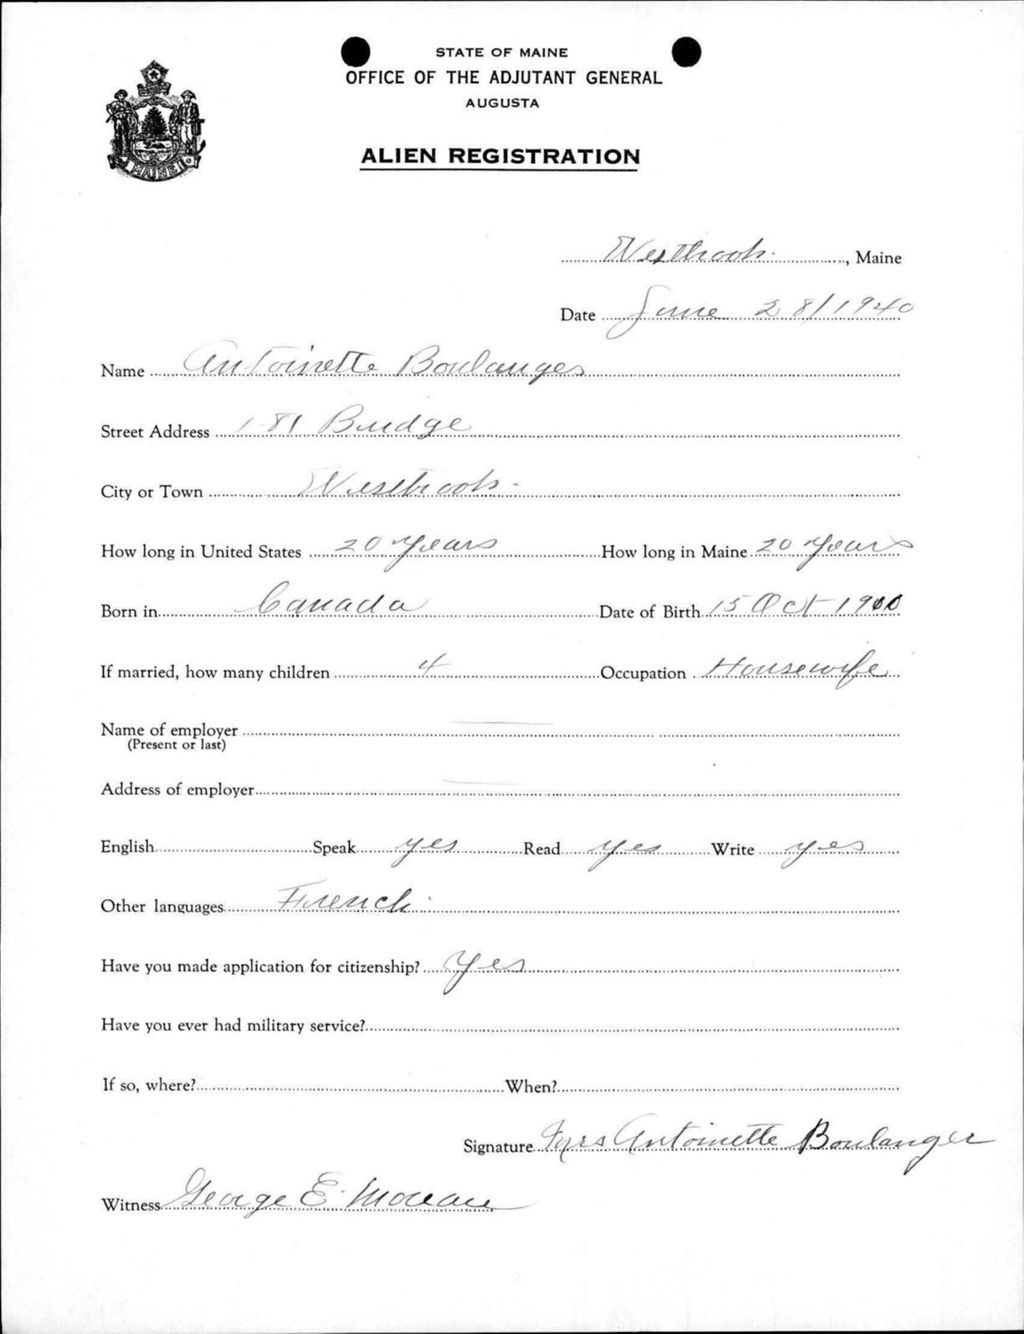 STATE OF MAINE
OFFICE OF THE ADJUTANT GENERAL
AUGUSTA
ALIEN REGISTRATION
MAINE
Westbrook, Maine
Date June 28/1940
Name Antoinette Boulanger
Street Address 181 Bridge
City or Town Westbrook
How long in United States 20 years How long in Maine 20 years
Born in Canada Date of Birth 15 Oct 1900
If married, how many children 4 Occupation Housewife
Name of employer
(Present or last)
Address of employer
English Speak yes Read yes Write yes
Other languages French
Have you made application for citizenship? Yes
Have you ever had military service?
If so, where? When?
Signature Mrs Antoinette Boulanger
Witness George E. Moreau